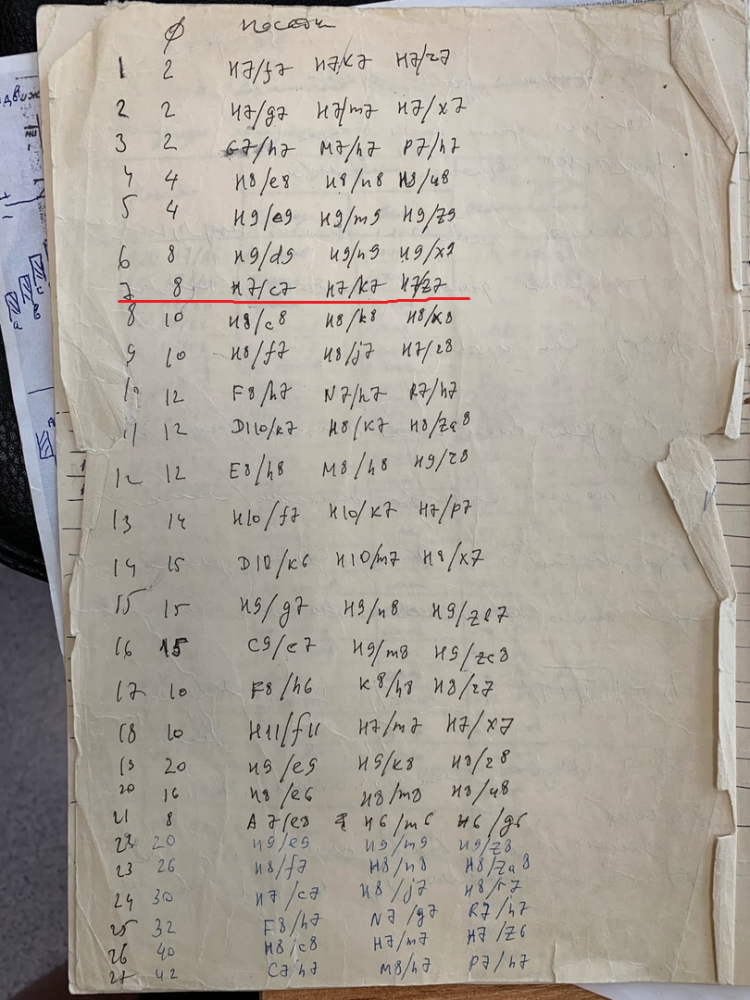 ∅ посадки
1 2 H7/f7 H7/k7 H7/r7
2 2 H7/g7 H7/m7 H7/x7
3 2 G7/h7 M7/h7 P7/h7
4 4 H8/e8 H8/n8 H8/u8
5 4 H9/e9 H9/m9 H9/z9
6 8 H9/d9 H9/n9 H9/x9
7 8 H7/c7 H7/k7 H7/z7
8 10 H8/c8 H8/k8 H8/x8
9 10 H8/f7 H8/j7 H7/r8
10 12 F8/h7 N7/h7 R7/h7
11 12 D10/k7 H8/k7 H8/za8
12 12 E8/h8 M8/h8 H9/r8
13 14 H10/f7 H10/k7 H7/p7
14 15 D10/k6 H10/m7 H8/x7
15 15 H9/g7 H9/n8 H9/ze7
16 15 C9/e7 H9/m8 H9/zc8
17 10 F8/h6 K8/h8 H8/r7
18 10 H11/f11 H7/m7 H7/x7
19 20 H9/e9 H9/k8 H8/r8
20 16 H8/e6 H8/m8 H8/u8
21 8 A7/e8 H6/m6 H6/g6
22 20 H9/e9 H9/m9 H9/z8
23 26 H8/f7 H8/n8 H8/za8
24 30 H7/c7 H8/j7 H8/r7
25 32 F8/h7 N7/g7 R7/h7
26 40 H8/c8 H7/m7 H7/z6
27 42 C7/h7 M8/h7 P7/h7